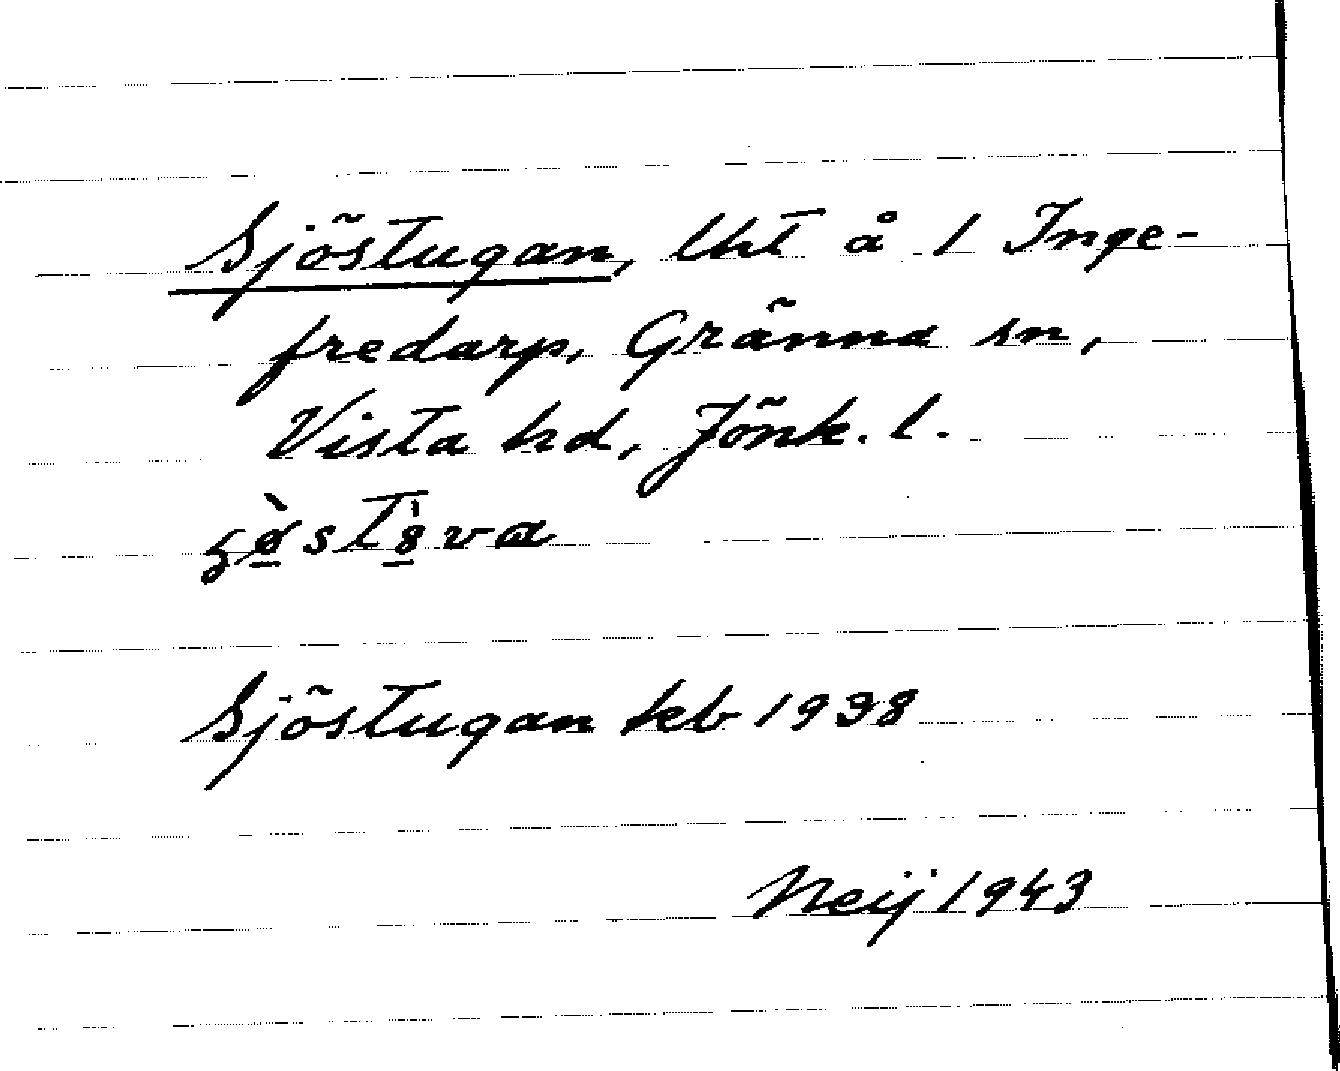 Sjöstugan, lht å 1 Inge-
fredarp, Gränna sn,
Vista hd, Jönk. l.
Sjöstugan keb 1938
Neij 1943